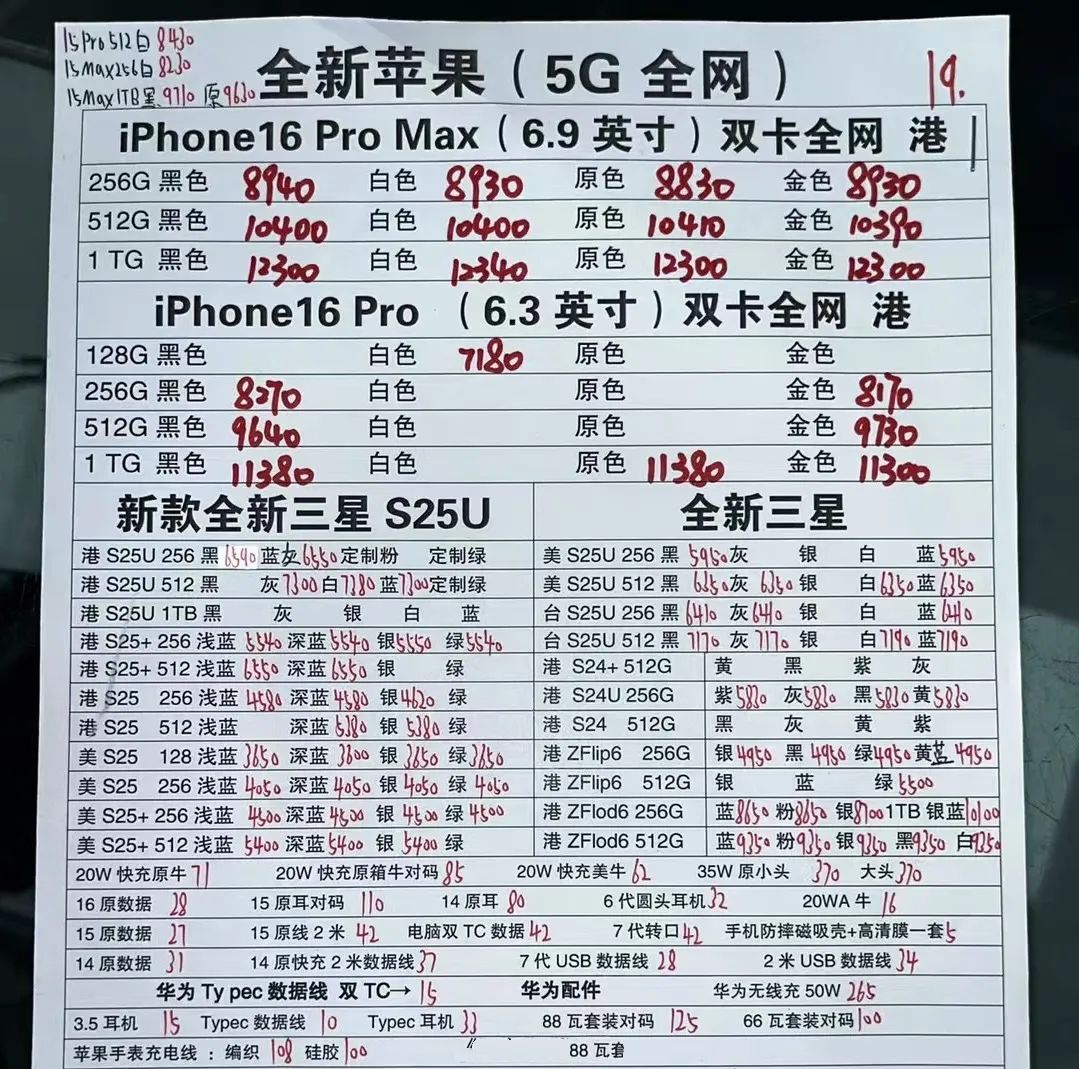 15Pro 512白 8430
15Max256白8230
15Max1TB黑 9710 原9630
全新苹果（5G 全网） 19.
iPhone16 Pro Max（6.9 英寸）双卡全网 港
256G 黑色 8940 白色 8930 原色 8830 金色 8930
512G 黑色 10400 白色 10400 原色 10410 金色 10390
1 TG 黑色 12300 白色 12340 原色 12300 金色 12300
iPhone16 Pro （6.3 英寸）双卡全网 港
128G 黑色 白色 7180 原色 金色
256G 黑色 8270 白色 原色 金色 8170
512G 黑色 9640 白色 原色 金色 9730
1 TG 黑色 11380 白色 原色 11380 金色 11300
新款全新三星 S25U
港 S25U 256 黑 6540 蓝灰6550 定制粉 定制绿
港 S25U 512 黑 灰7300白7380蓝7300定制绿
港 S25U 1TB 黑 灰 银 白 蓝
港 S25+ 256 浅蓝 5540 深蓝 5540 银5550 绿5540
港 S25+ 512 浅蓝 6550 深蓝 6550 银 绿
港 S25 256 浅蓝 4580 深蓝 4580 银4620 绿
港 S25 512 浅蓝 深蓝 5380 银 5380 绿
美 S25 128 浅蓝 3650 深蓝 3600 银 3650 绿3650
美 S25 256 浅蓝 4050 深蓝 4050 银 4050 绿 4050
美 S25+ 256 浅蓝 4500 深蓝 4500 银 4500 绿 4500
美 S25+ 512 浅蓝 5400 深蓝 5400 银 5400 绿
全新三星
美 S25U 256 黑 5950灰 银 白 蓝5950
美 S25U 512 黑 6350灰 6350 银 白6350蓝6350
台 S25U 256 黑 6410 灰 6410 银 白 蓝 6410
台 S25U 512 黑 7170 灰 7170 银 白7190 蓝7190
港 S24+ 512G 黄 黑 紫 灰
港 S24U 256G 紫5830 灰5830 黑 5830 黄5830
港 S24 512G 黑 灰 黄 紫
港 ZFlip6 256G 银4950 黑 4950 绿4950 黄蓝 4950
港 ZFlip6 512G 银 蓝 绿 5500
港 ZFlod6 256G 蓝8650 粉8650 银8700 1TB 银蓝10100
港 ZFlod6 512G 蓝9350 粉9350 银9350 黑9350 白9350
20W 快充原牛 71 20W 快充原箱牛对码 85 20W 快充美牛 62 35W 原小头 370 大头 370
16 原数据 28 15 原耳对码 110 14 原耳 80 6 代圆头耳机 32 20WA 牛 16
15 原数据 27 15 原线 2 米 42 电脑双 TC 数据 42 7 代转口 42 手机防摔磁吸壳+高清膜一套5
14 原数据 31 14 原快充 2 米数据线 37 7 代 USB 数据线 28 2 米 USB 数据线 34
华为 Ty pec 数据线 双 TC→ 15 华为配件 华为无线充 50W 265
3.5 耳机 15 Typec 数据线 10 Typec 耳机 33 88 瓦套装对码 125 66 瓦套装对码 100
苹果手表充电线 ：编织 108 硅胶 100 88 瓦套